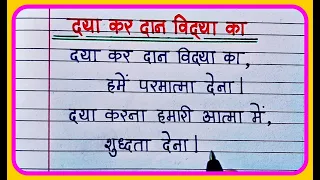 दया कर दान विद्या का
दया कर दान विद्या का,
हमें परमात्मा देना।
दया करना हमारी आत्मा में,
शुध्दता देना।